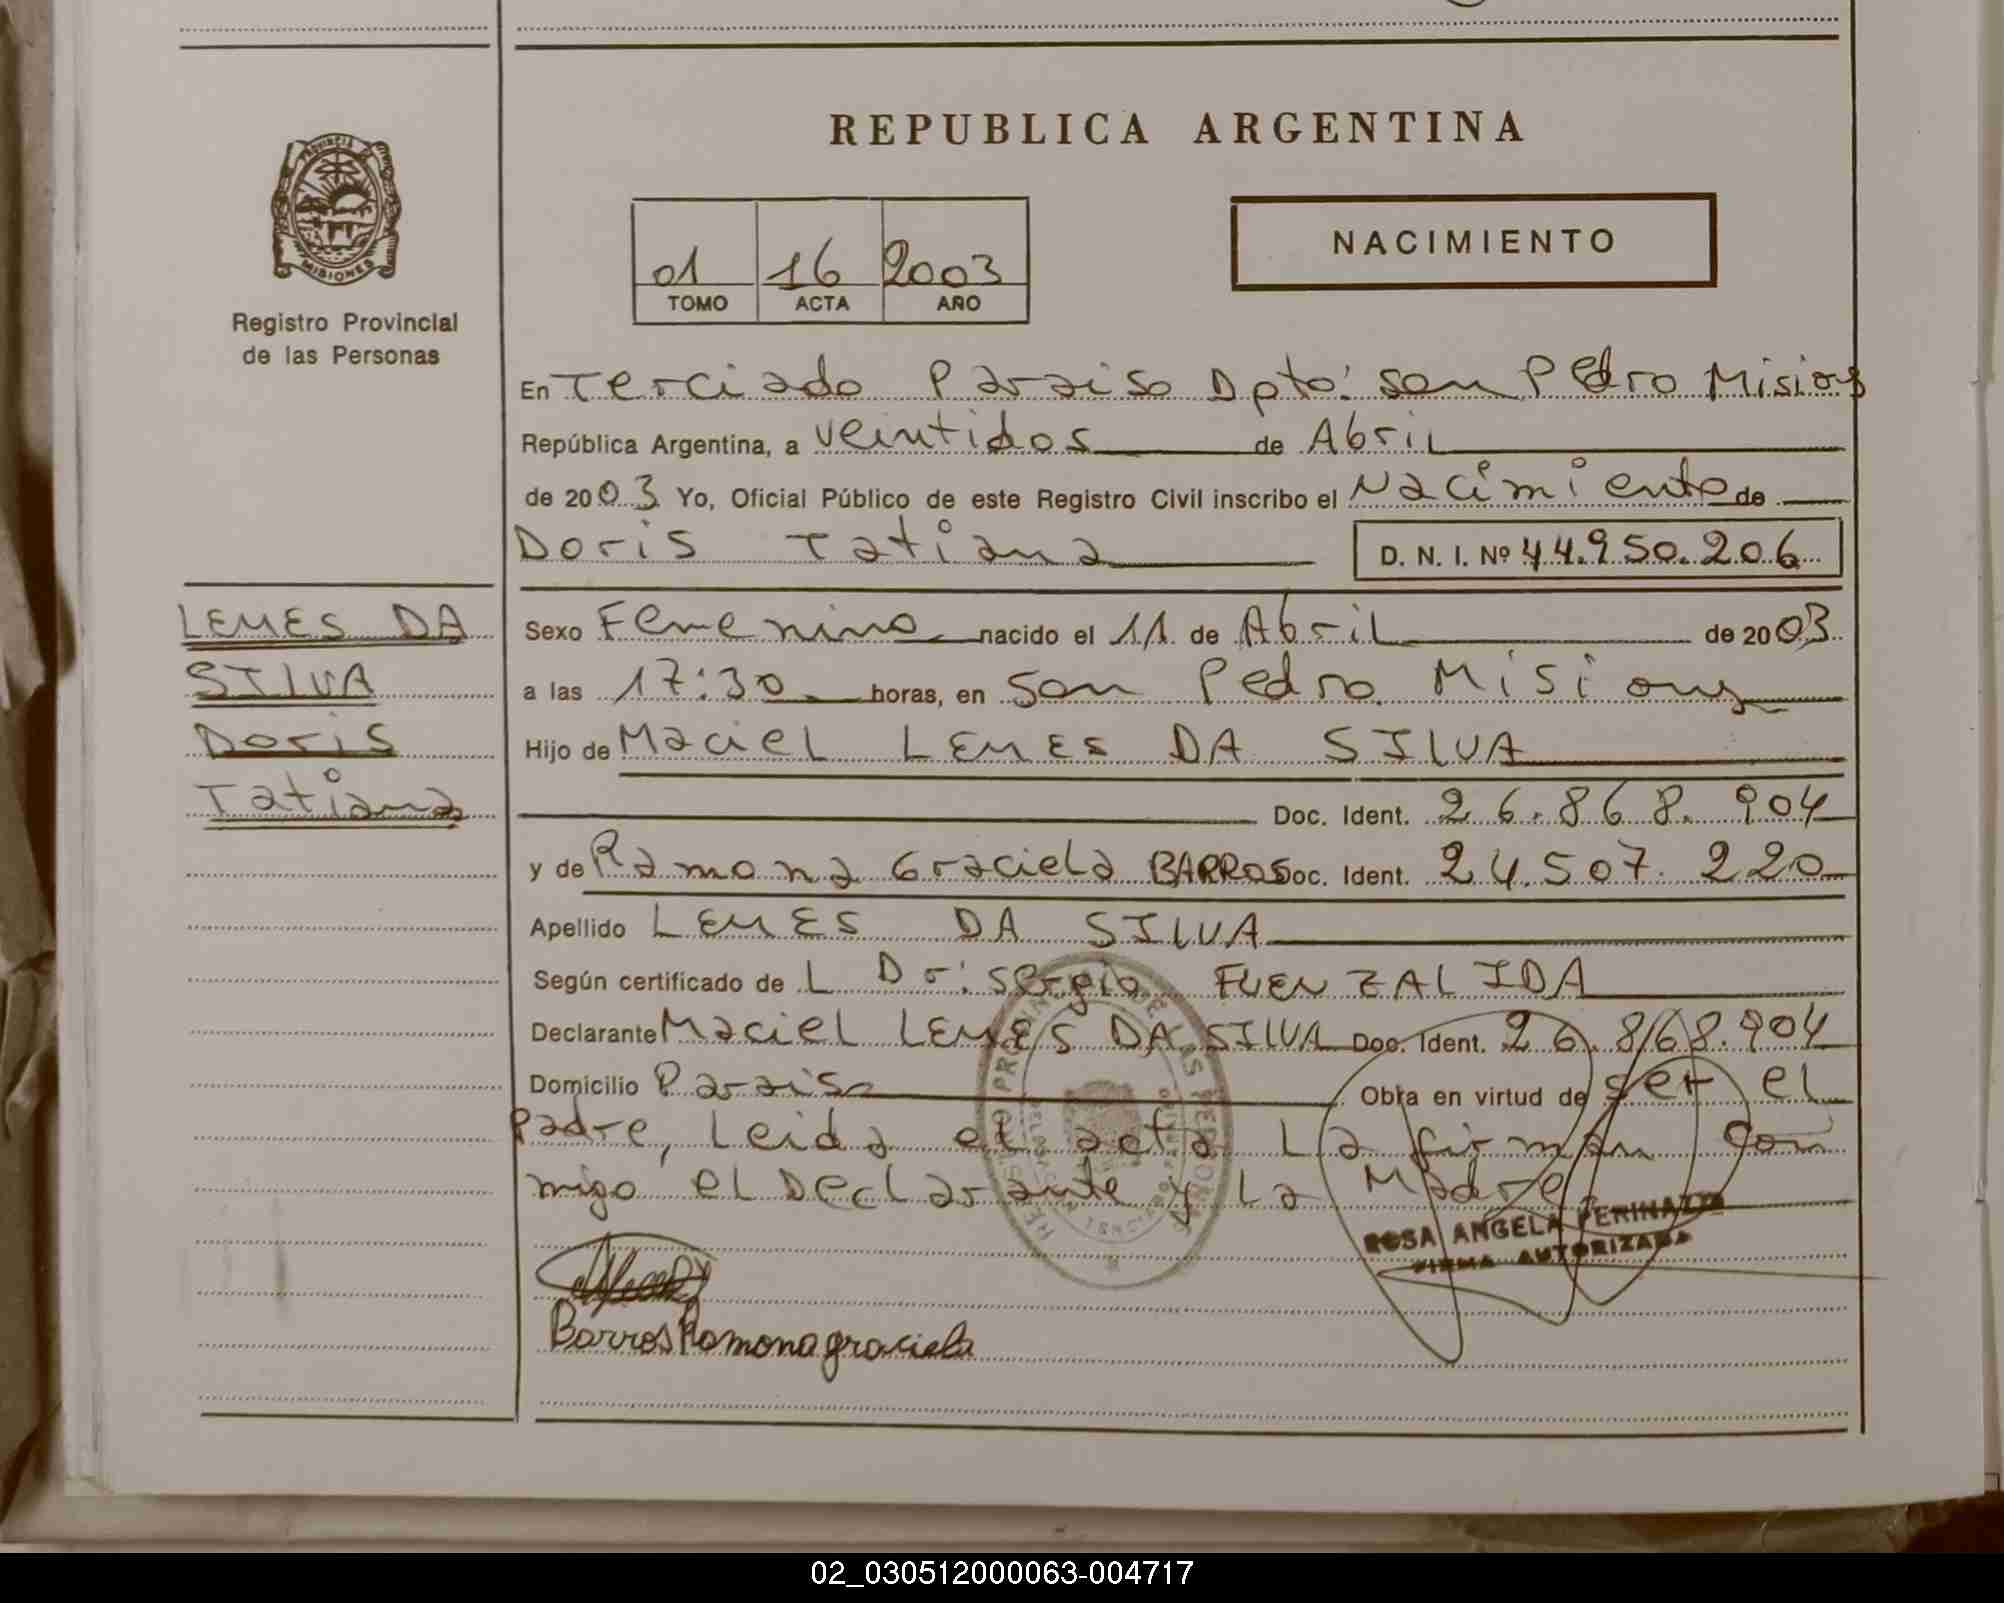 REPUBLICA ARGENTINA
PROVINCIA DE
MISIONES
Registro Provincial
de las Personas
01 16 2003
TOMO ACTA AÑO
NACIMIENTO
En Terciado Paraiso Dpto: San Pedro Misiones
República Argentina, a veintidos de Abril
de 2003 Yo, Oficial Público de este Registro Civil inscribo el Nacimiento de
Doris Tatiana D. N. I. Nº 44.950.206
LEMES DA
SILVA
Doris
Tatiana
Sexo Femenino nacido el 11 de Abril de 2003
a las 17:30 horas, en San Pedro Misiones
Hijo de Maciel LEMES DA SILVA
Doc. Ident. 26.868.904
y de Ramona Graciela BARROS Doc. Ident. 24.507.220
Apellido LEMES DA SILVA
Según certificado de L Dr: Sergio FUENZALIDA
Declarante Maciel LEMES DA SILVA Doc. Ident. 26.868.904
Domicilio Paraiso Obra en virtud de ser el
Padre, Leida el acta La firman con
migo el Declarante y La Madre
ROSA ANGELA PERINAZZO
FIRMA AUTORIZADA
Barros Ramona graciela
02_030512000063-004717